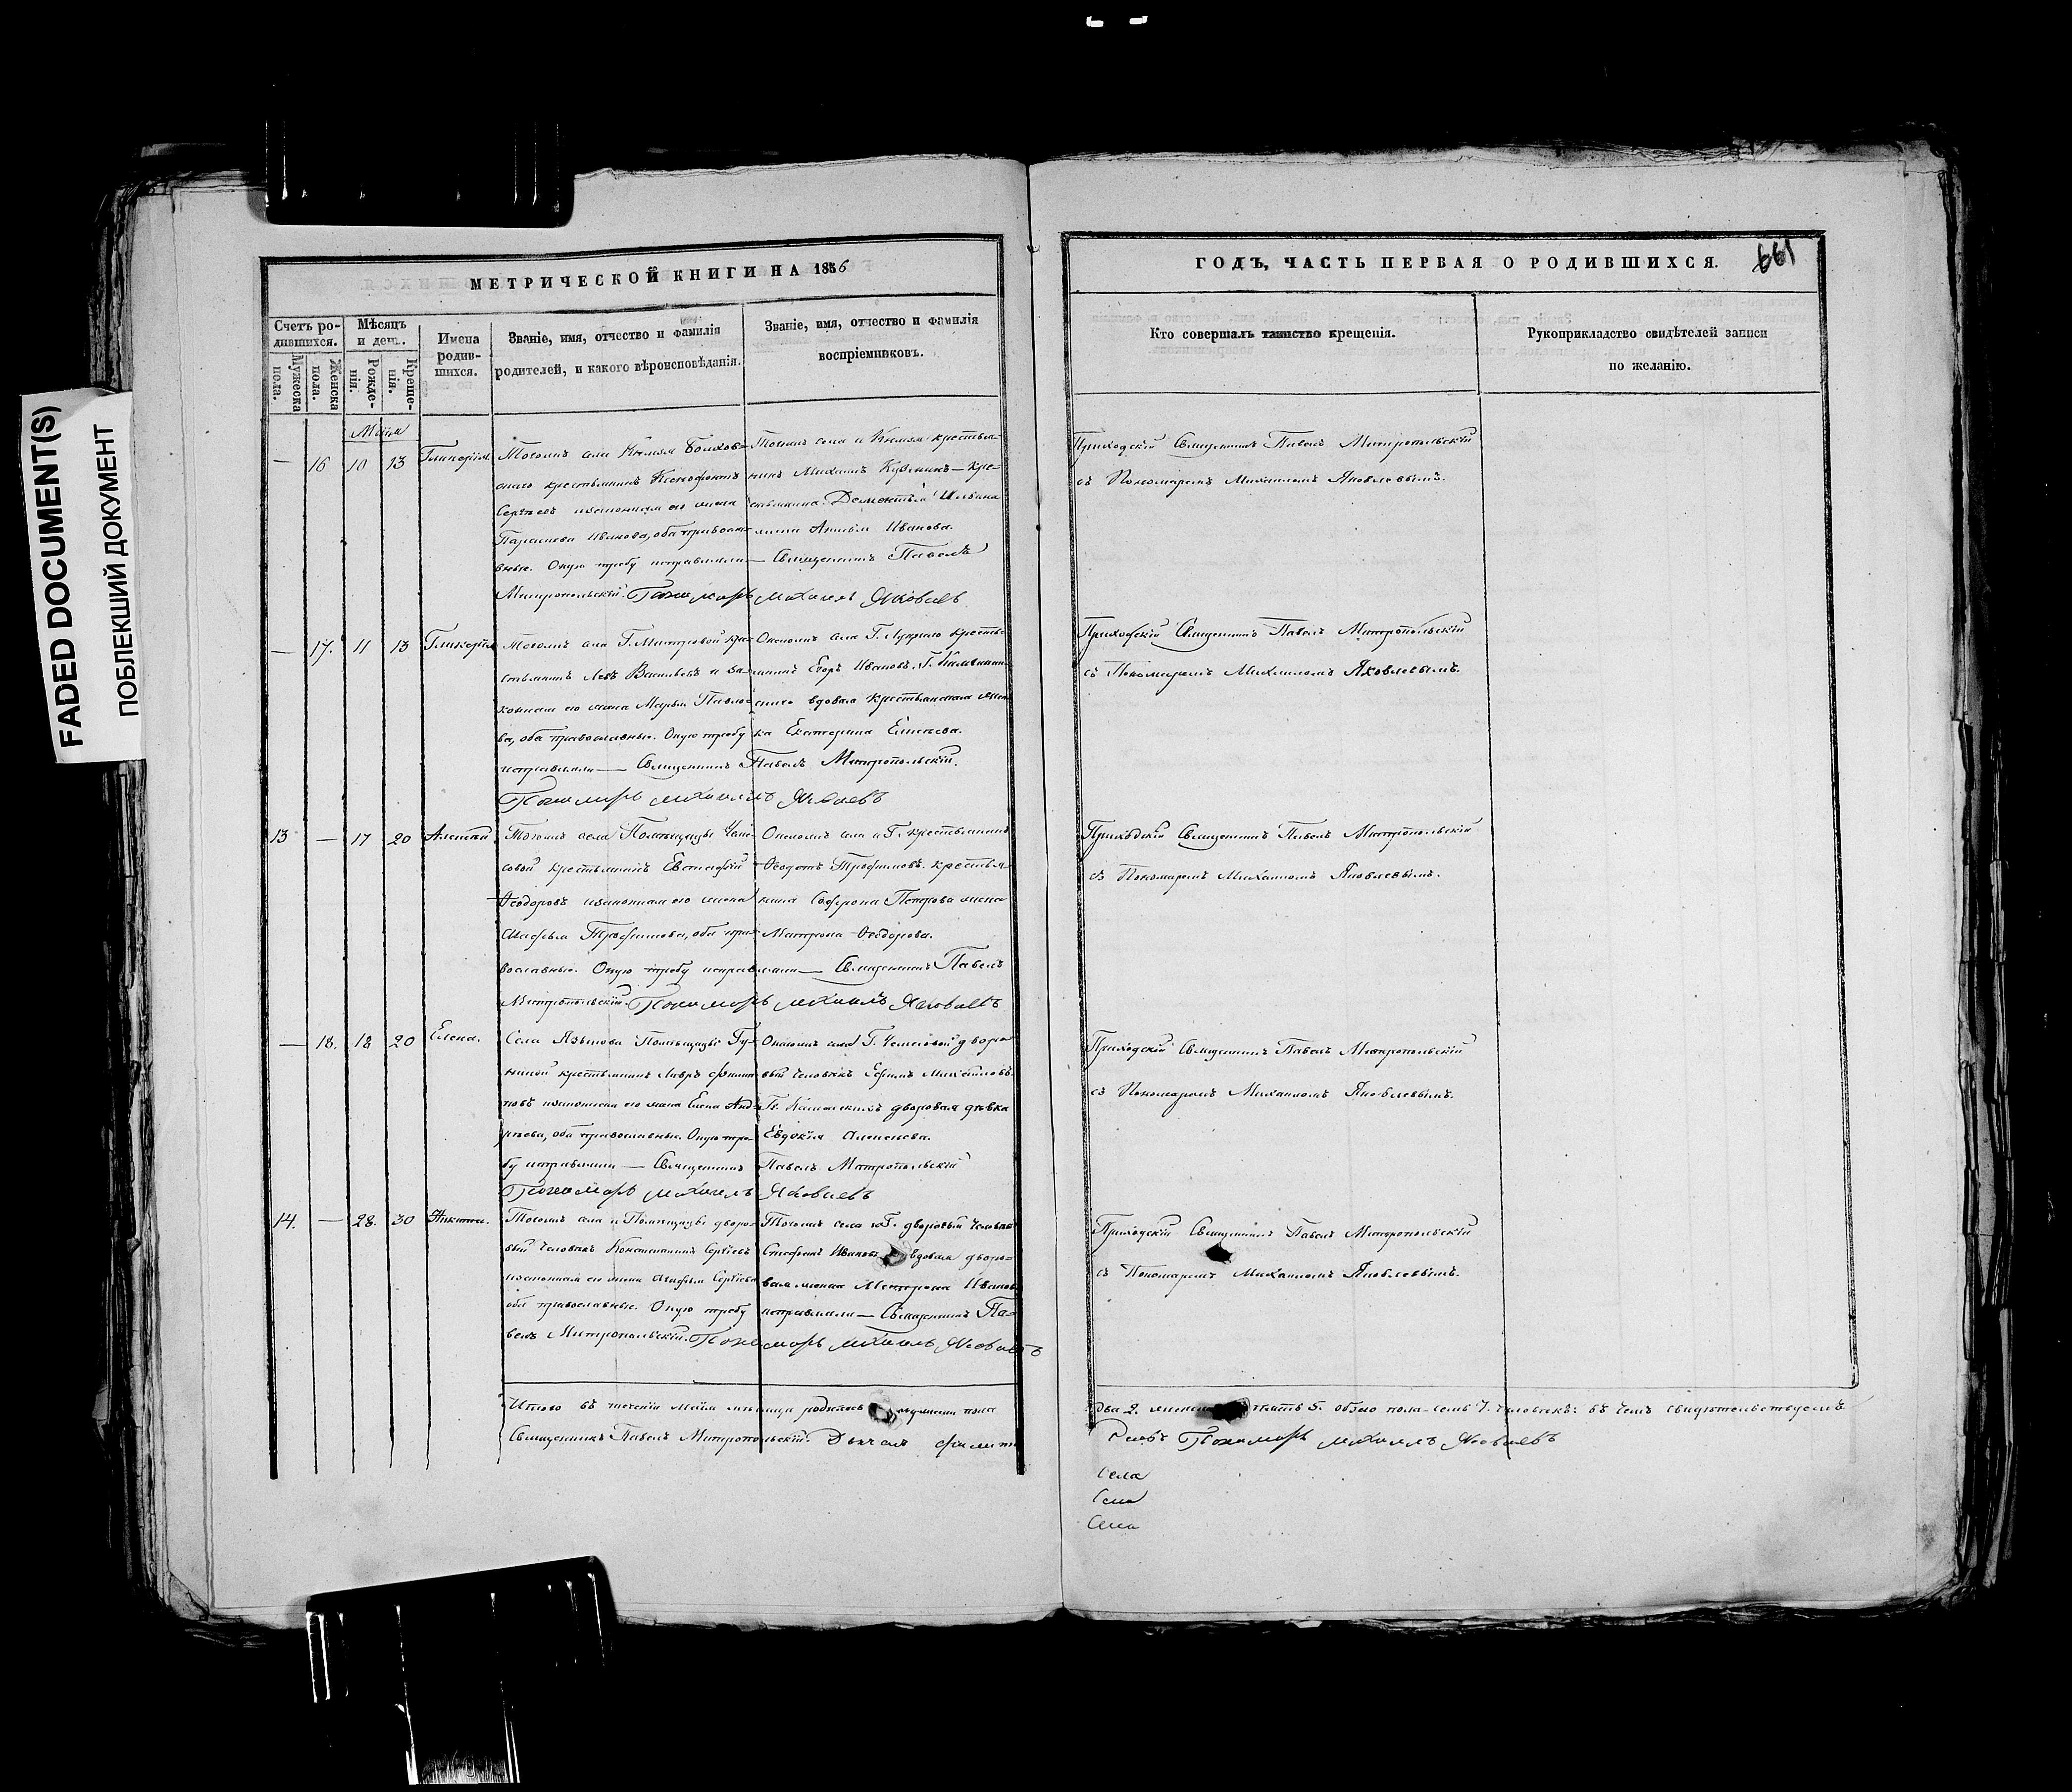 FADED DOCUMENT(S)
ПОБЛЕКШИЙ ДОКУМЕНТ
МЕТРИЧЕСКОЙ КНИГИ НА 1856
Счетъ родившихся.
Мужеска пола.
Женска пола.
Мѣсяцъ и день.
Рожденія.
Крещенія.
Имена родившихся.
Званіе, имя, отчество и фамилія
родителей, и какого вѣроисповѣданія.
Званіе, имя, отчество и фамилія
воспріемниковъ.
Маія
— 16 10 13 Гликерія.
Тогожъ села Князя Волхов-
скаго крестьянинъ Ксенофонтъ
Сергѣевъ изаконная его жена
Параскева Иванова, оба православ-
ные. Оную требу исправляли — Священникъ Павелъ
Митропольскій. Пономарь михаилъ Яковлевъ
Тогожъ села и Князя крестья-
нинъ Михаилъ Кре-
стьянина Дементья Ильина
жена Анисья Иванова.
— 17. 11 13 Гликерія
Тогожъ села Г. кре-
стьянинъ Левъ Васильевъ и за-
конная его жена Марья Павло-
ва, оба православные. Оную требу
исправляли — Священникъ Павелъ Митропольскій.
Пономарь михаилъ Яковлевъ
Онагожъ села Г. крестья-
нинъ Егоръ Ивановъ. Г.
вдовая крестьянская жен-
ка Екатерина Елисеева.
13 — 17 20 Алексѣй
Тогожъ села Помѣщицы
крестьянинъ Евстафій
Ѳеодоровъ изаконная его жена
Трофимова, оба пра-
вославные. Оную требу исправляли — Священникъ Павелъ
Митропольскій. Пономарь михаилъ Яковлевъ
Онагожъ села и Г. крестьянинъ
Ѳеодотъ Трофимовъ. крестья-
нина Софрона Петрова жена
Матрона Ѳеодорова.
— 18. 18 20 Елена.
Села Языкова Помѣщицы
крестьянинъ Лавръ Филип-
повъ изаконная его жена Елена Анд-
рѣева, оба православные. Оную тре-
бу исправляли — Священникъ Павелъ Митропольскій
Пономарь михаилъ Яковлевъ
Онагожъ села Г. дворо-
вый человѣкъ Ефимъ Михайловъ.
дворовая дѣвка
Евдокія Алексѣева.
14. — 28. 30 Никита.
Тогожъ села и Помѣщицы дворо-
вый человѣкъ Константинъ Сергѣевъ
изаконная его жена Сергѣева
оба православные. Оную требу исправляли — Священникъ Па-
велъ Митропольскій. Пономарь михаилъ Яковлевъ
Тогожъ села и Г. дворовый человѣкъ
Стефанъ Ивановъ вдовая дворо-
вая женка Матрона Иванова
Итого въ теченіи Маія мѣсяца родилось мужеска пола
Священникъ Павелъ Митропольскій. Дьячекъ
ГОДЪ, ЧАСТЬ ПЕРВАЯ О РОДИВШИХСЯ.
661
Кто совершалъ таинство крещенія.
Рукоприкладство свидѣтелей записи
по желанію.
Приходскій Священникъ Павелъ Митропольскій
съ Пономаремъ Михаиломъ Яковлевымъ.
Приходскій Священникъ Павелъ Митропольскій
съ Пономаремъ Михаиломъ Яковлевымъ.
Приходскій Священникъ Павелъ Митропольскій
съ Пономаремъ Михаиломъ Яковлевымъ.
Приходскій Священникъ Павелъ Митропольскій
съ Пономаремъ Михаиломъ Яковлевымъ.
Приходскій Священникъ Павелъ Митропольскій
съ Пономаремъ Михаиломъ Яковлевымъ.
два 2. женска пять 5. обоего пола семь 7. человѣкъ: въ чемъ свидѣтельствуемъ
Пономарь михаилъ Яковлевъ
Села
Села
Села